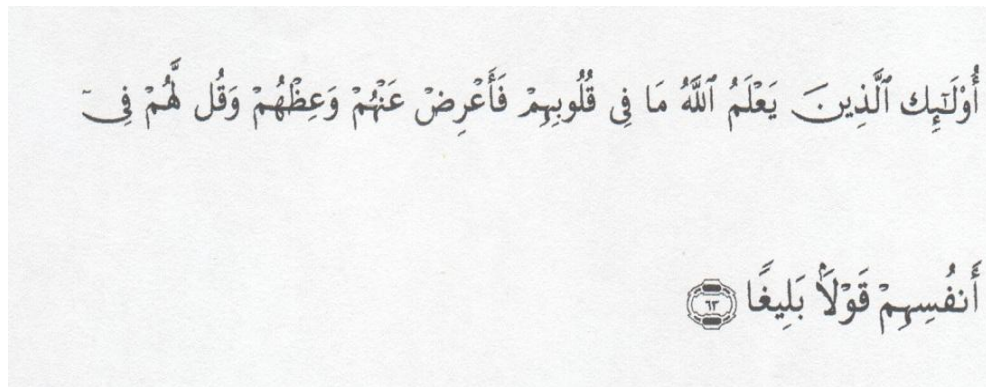 أُوْلَـٰٓئِكَ ٱلَّذِينَ يَعْلَمُ ٱللَّهُ مَا فِى قُلُوبِهِمْ فَأَعْرِضْ عَنْهُمْ وَعِظْهُمْ وَقُل لَّهُمْ فِىٓ
أَنفُسِهِمْ قَوْلَۢا بَلِيغًا ٦٣